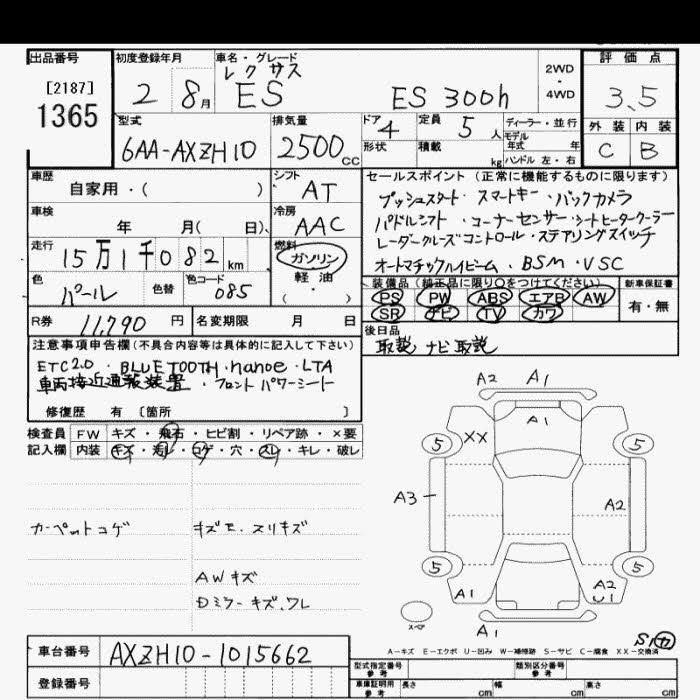 出品番号
[2187]
1365
初度登録年月
2 8月
車名・グレード
レクサス
ES ES 300h
2WD
・
4WD
評価点
3.5
外装 内装
C B
型式
6AA-AXZH10
排気量
2500cc
ドア 4
定員 5人
形状
積載 kg
ディーラー・並行
モデル
年式 年
ハンドル 左・右
車歴
自家用・( )
シフト
AT
車検
年 月( 日)
冷房
AAC
走行
15万1千082km
燃料
ガソリン
軽油
・
( )
色
パール
色替
色コード
085
R券 11,790円
名変期限 月 日
セールスポイント(正常に機能するものに限ります)
プッシュスタート・スマートキー・バックカメラ
パドルシフト・コーナーセンサー・シートヒータークーラー
レーダークルーズコントロール・ステアリングスイッチ
オートマチックハイビーム・BSM・VSC
装備品(純正品に限り○をつけてください)
PS PW ABS エアB AW
SR ナビ TV カワ
新車保証書
有・無
後日品
取説 ナビ取説
注意事項申告欄(不具合内容等は具体的に記入して下さい)
ETC2.0・BLUETOOTH・nanoe・LTA
車両接近通報装置・フロントパワーシート
修復歴 有 〔箇所 〕
検査員
記入欄
FW キズ・飛石・ヒビ割・リペア跡・×要
内装 キズ・汚レ・コゲ・穴・スレ・キレ・破レ
カーペットコゲ
キズモ.スリキズ
AWキズ
Dミラーキズ.ワレ
A2 A1
A1
XX
5 5
A3
A2
5 5
A1
A2
U1
スペア
A1
A-キズ E-エクボ U-凹み W-補修跡 S-サビ C-腐食 XX-交換済
車台番号
AXZH10-1015662
登録番号
型式指定番号
参考
類別区分番号
参考
車庫証明用
参考
長さ cm 幅 cm 高さ cm